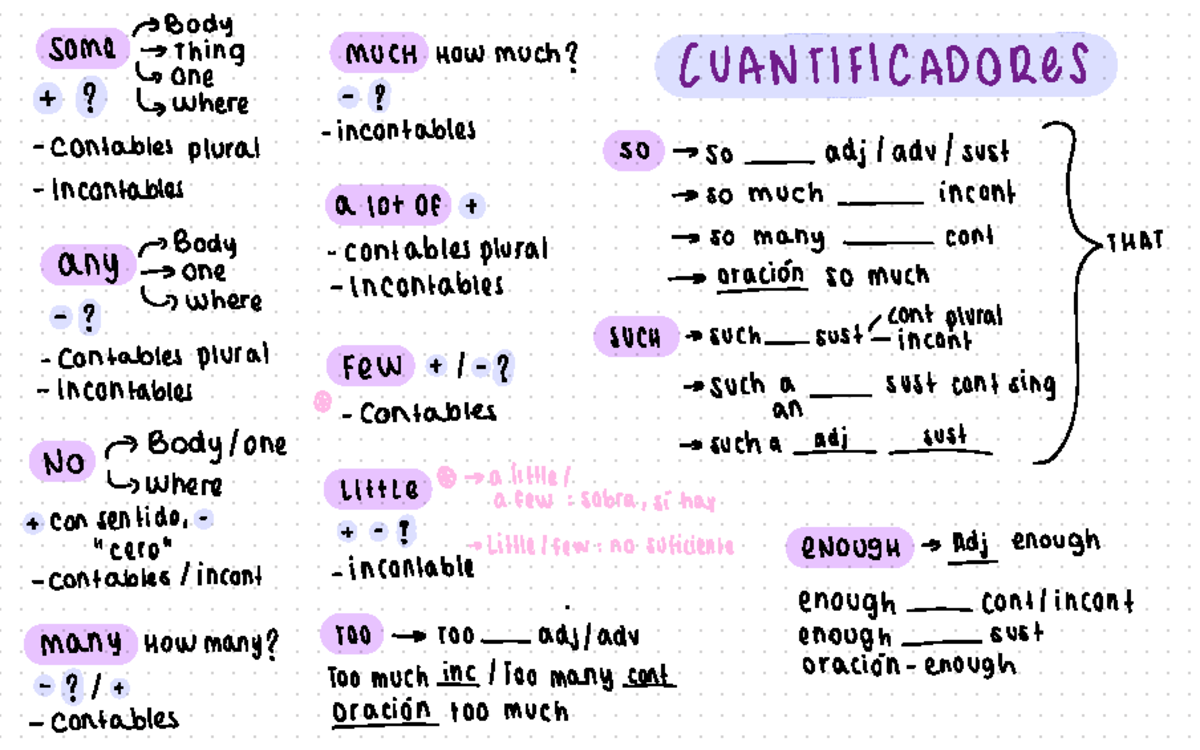 CUANTIFICADORES
some → Body
→ Thing
→ one
→ where
+ ?
- Contables plural
- Incontables
any → Body
→ one
→ where
- ?
- Contables plural
- Incontables
NO → Body/one
→ where
+ con sentido, -
"cero"
- contables / incont
many How many?
- ? / +
- contables
MUCH How much?
- ?
- incontables
a lot of +
- contables plural
- Incontables
Few + / - ?
- Contables
Little → a little/
a few : sobra, si hay
+ - ?
→ Little/few: no suficiente
- incontable
TOO → TOO ___ adj/adv
Too much inc / Too many cont
oración too much
SO → so ___ adj/adv/sust
→ so much ___ incont
→ so many ___ cont
→ oración so much
SUCH → such ___ sust cont plural
- incont
→ such a ___ sust cont sing
an
→ such a adj sust
THAT
ENOUGH → Adj enough
enough ___ cont/incont
enough ___ sust
oración - enough